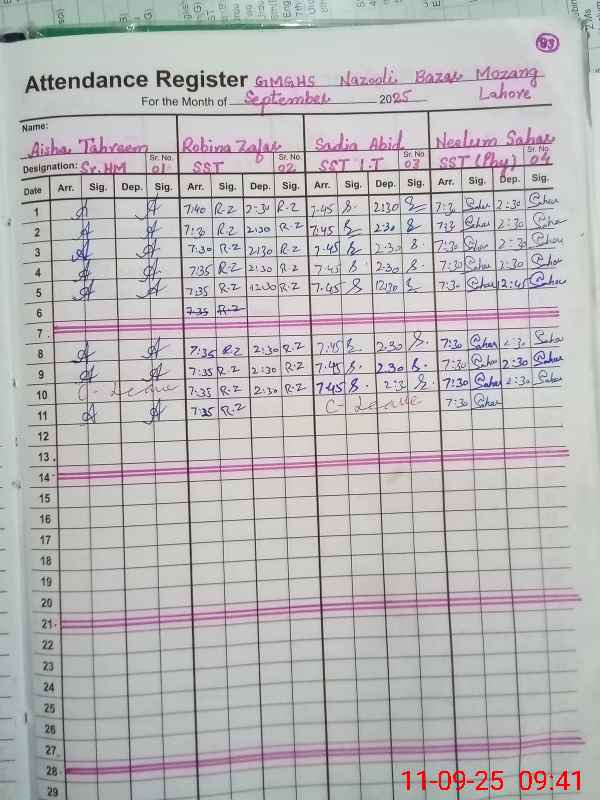 93
Attendance Register GMGHS Nazooli Bazar Mozang
For the Month of September 2025 Lahore
Name: Aisha Tahreem Robina Zafar Sadia Abid Neelum Sahar
Designation: Sr.HM Sr. No. 01 SST Sr. No. 02 SST I.T Sr. No. 03 SST (Phy) Sr. No. 04
Date Arr. Sig. Dep. Sig. Arr. Sig. Dep. Sig. Arr. Sig. Dep. Sig. Arr. Sig. Dep. Sig.
1 A A 7:40 R-Z 2:30 R-Z 7:45 S. 2:30 S 7:3 Sahar 2:30 Sahar
2 A A 7:30 R-Z 2:30 R-Z 7:45 S 2:30 S 7:3 Sahar 2:30 Sahar
3 A A 7:30 R-Z 2:30 R-Z 7:45 S 2:30 S. 7:30 Sahar 2:30 Sahar
4 A A 7:35 R-Z 2:30 R-Z 7:45 S 2:30 S. 7:30 Sahar 2:30 Sahar
5 A A 7:35 R-Z 12:30 R-Z 7:45 S 12:30 S 7:30 Sahar 2:45 Sahar
6 7:35 R-Z
7
8 A A 7:35 R-Z 2:30 R-Z 7:45 S 2:30 S. 7:30 Sahar 2:30 Sahar
9 A A 7:35 R-Z 2:30 R-Z 7:45 S. 2:30 S. 7:30 Sahar 2:30 Sahar
10 C-Leave 7:35 R-Z 2:30 R-Z 7:45 S. 2:3 S. 7:30 Sahar 2:30 Sahar
11 A A 7:35 R-Z C-Leave 7:30 Sahar
12
13
14
15
16
17
18
19
20
21
22
23
24
25
26
27
28
29
11-09-25 09:41